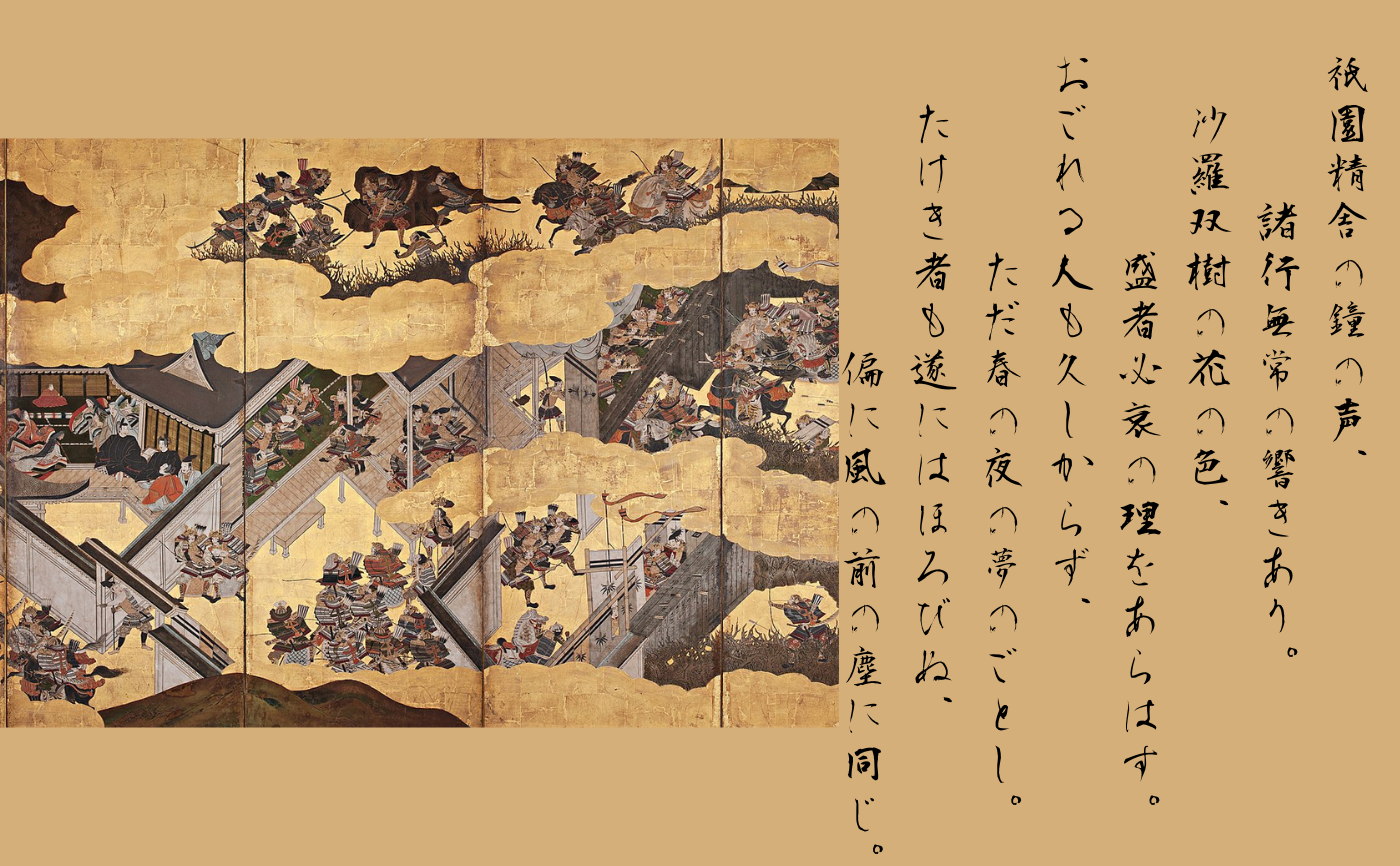 祇園精舎の鐘の声、
諸行無常の響きあり。
沙羅双樹の花の色、
盛者必衰の理をあらはす。
おごれる人も久しからず、
ただ春の夜の夢のごとし。
たけき者も遂にはほろびぬ、
偏に風の前の塵に同じ。